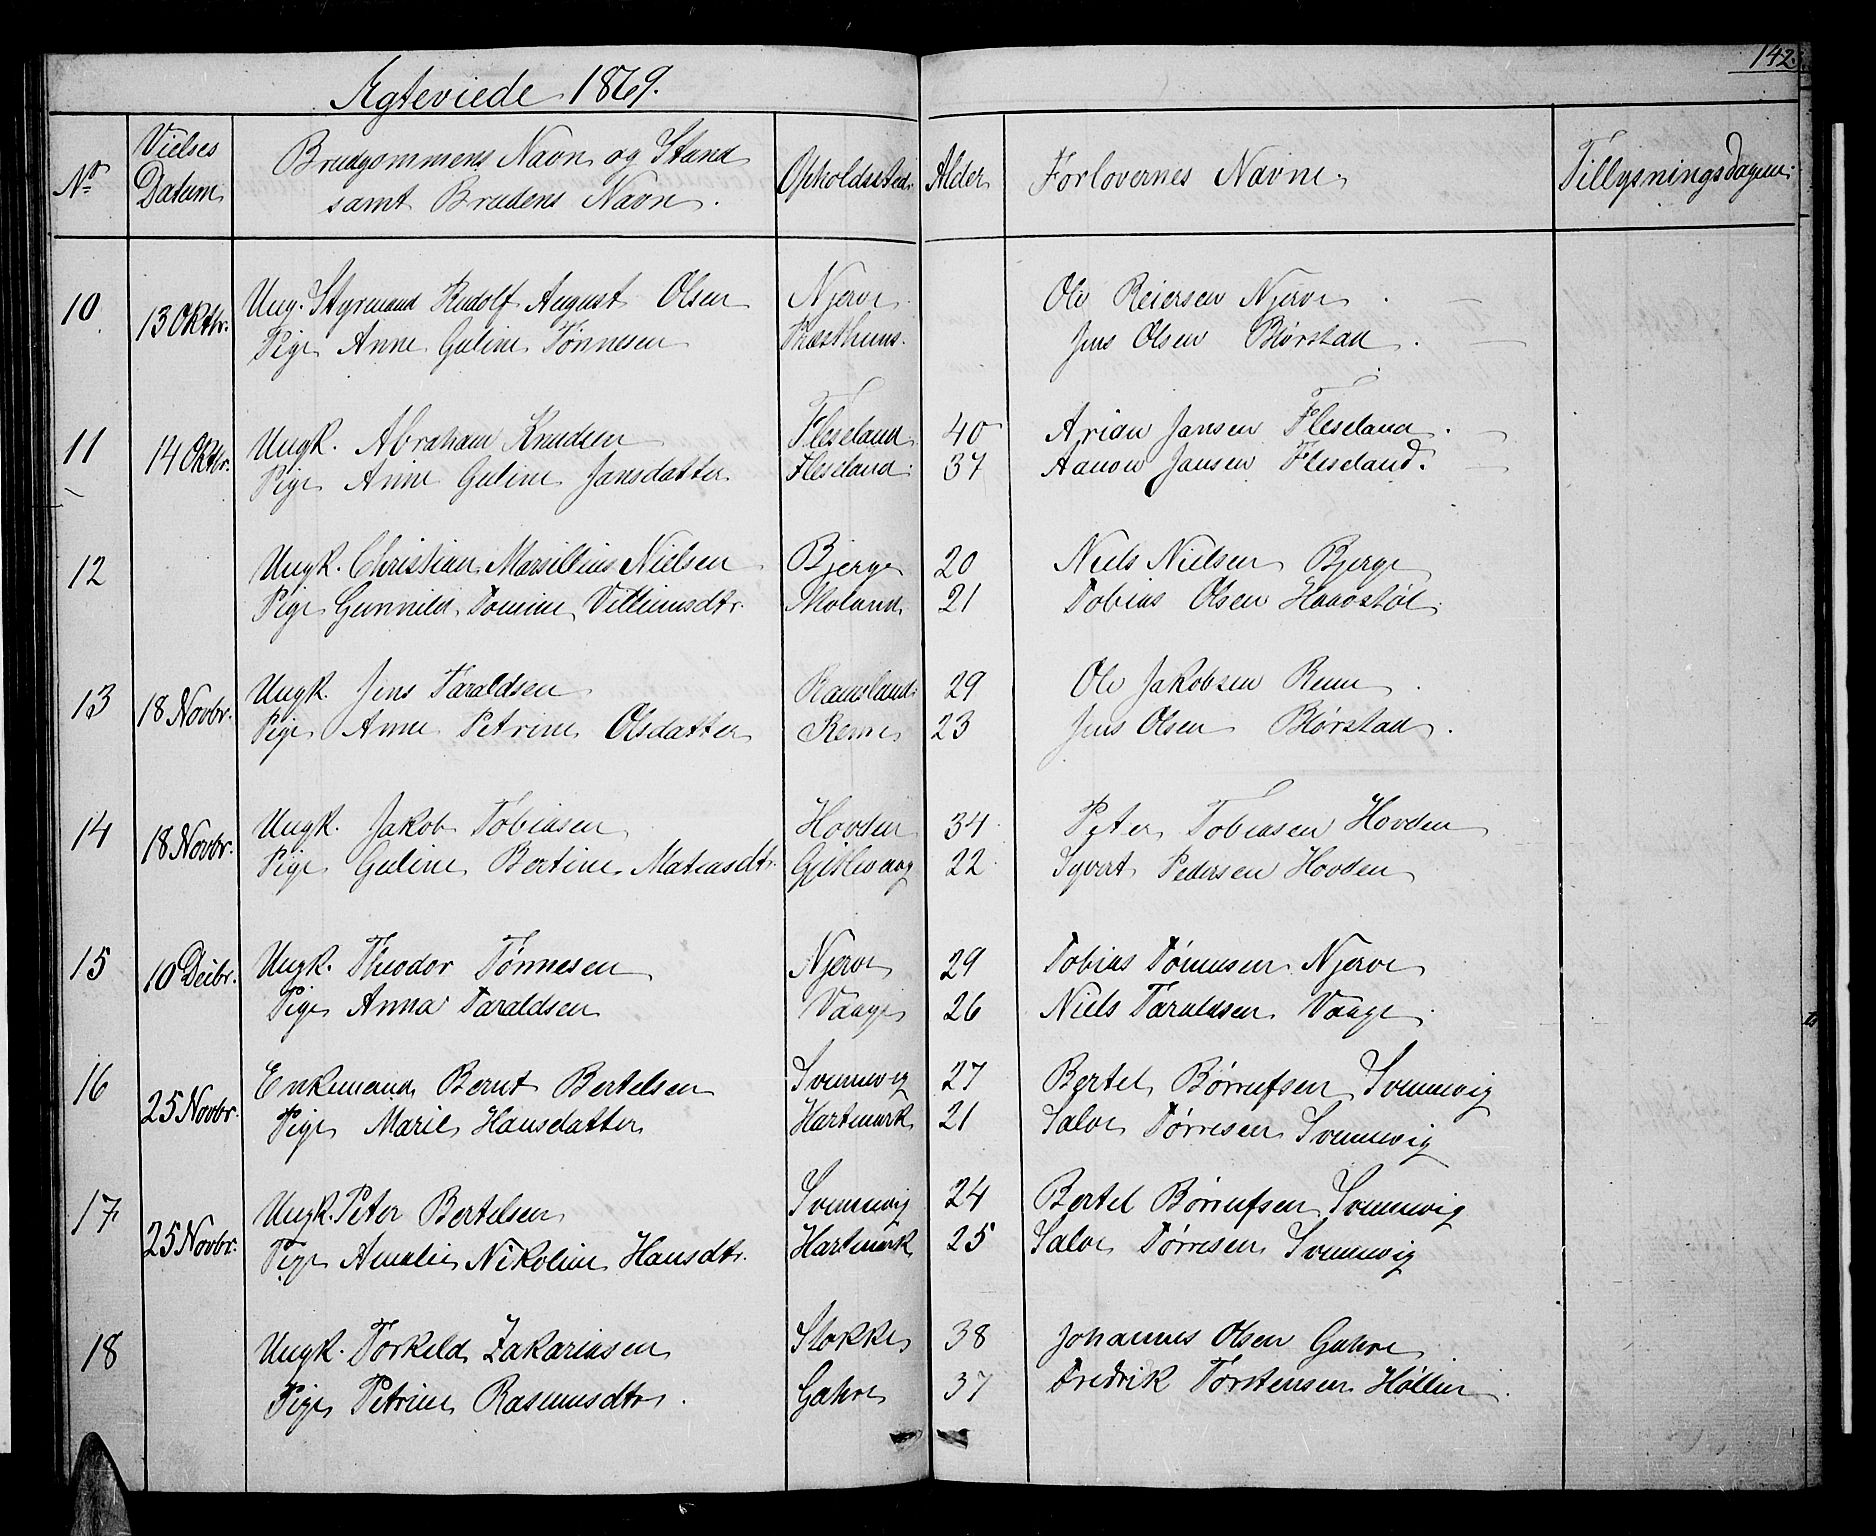 142.
Ægteviede 1869.
No
Vielses Datum
Brudgommens Navn og Stand samt Brudens Navn.
Opholdssted.
Alder
Forlovernes Navne.
Tillysningsdagene.
10 13 Oktbr. Ung. Styrmand Rudolf August Olsen Njerve Ole Reiersen Njerve.
Pige Anne Guline Tönnesen Præsthuus. Jens Olsen Blørstad.
11 14 Oktbr. Ungk. Abraham Knudsen Fleseland 40 Arian Jansen Fleseland.
Pige Anne Guline Jansdatter Fleseland. 37 Aanon Jansen Fleseland.
12 Ungk. Christian Marsillius Nielsen Bjerge 20 Niels Nielsen Bjerge
Pige Gunnild Tomine Villumsdtr. Moland 21 Tobias Olsen
13 18 Novbr. Ungk. Jens Taraldsen 29 Ole Jakobsen Reme.
Pige Anne Petrine Olsdatter Reme 23 Jens Olsen Blørstad.
14 18 Novbr. Ungk. Jakob Tobiasen Hovden 34 Peter Tobiasen Hovden
Pige Guline Bertine Matiasdtr. Gjislevaag 22 Syvert Pedersen Hovden
15 10 Deibr. Ungk. Theodor Tönnesen Njerve 29 Tobias Tönnesen Njerve
Pige Anna Taraldsen Vaage 26 Niels Taraldsen Vaage.
16 25 Novbr. Enkemand Bernt Bertelsen Svennevig 27 Bertel Börrufsen Svennevig
Pige Marie Hansdatter Hartmark 21 Salve Törresen Svennevig
17 25 Novbr. Ungk. Peter Bertelsen Svennevig 24 Bertel Börrufsen Svennevig
Pige Amalie Nikoline Hansdtr. Hartmark 25 Salve Törresen Svennevig
18 Ungk. Torkeld Zakariasen Stokke 38 Johannes Olsen Gahre
Pige Petrine Rasmusdtr. Gahre 37 Fredrik Torstensen Höllen.